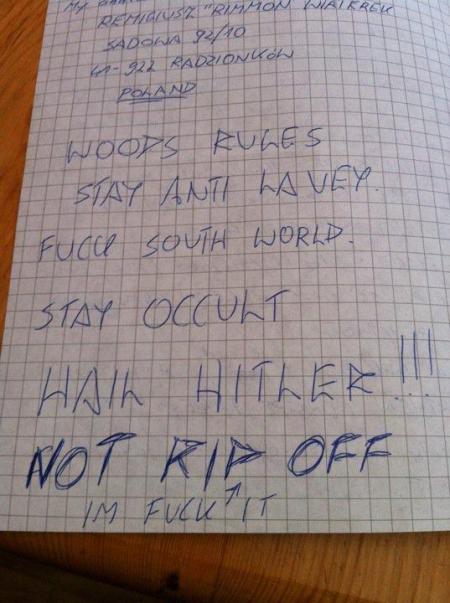 MY
REMIGIUSZ "RIMMON WIATEREK
SADOWA 92/10
41-922 RADZIONKÓW
POLAND
WOODS RULES
STAY ANTI LAVEY.
FUCK SOUTH WORLD.
STAY OCCULT
HAIL HITLER!!!
NOT RIP OFF
IM FUCK↑IT